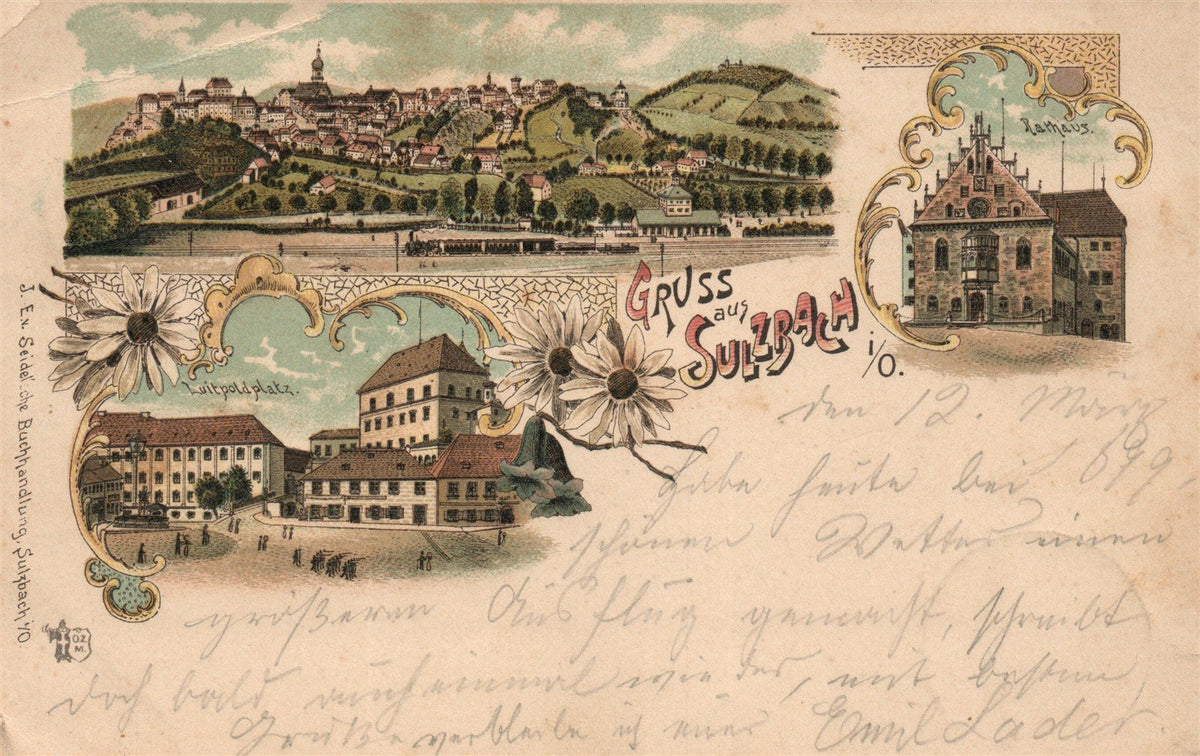 Rathaus.
GRUSS
aus
SULZBACH
i/O.
Luitpoldplatz.
J. Ev. Seidel'sche Buchhandlung, Sulzbach i/O.
O.Z.
M.
den 12. März
habe heute bei 699,
schönem Wetter einen
größeren Ausflug gemacht, schreibt
doch bald auch einmal wieder, mit besten
Grüße verbleibe ich euer Emil Lader.